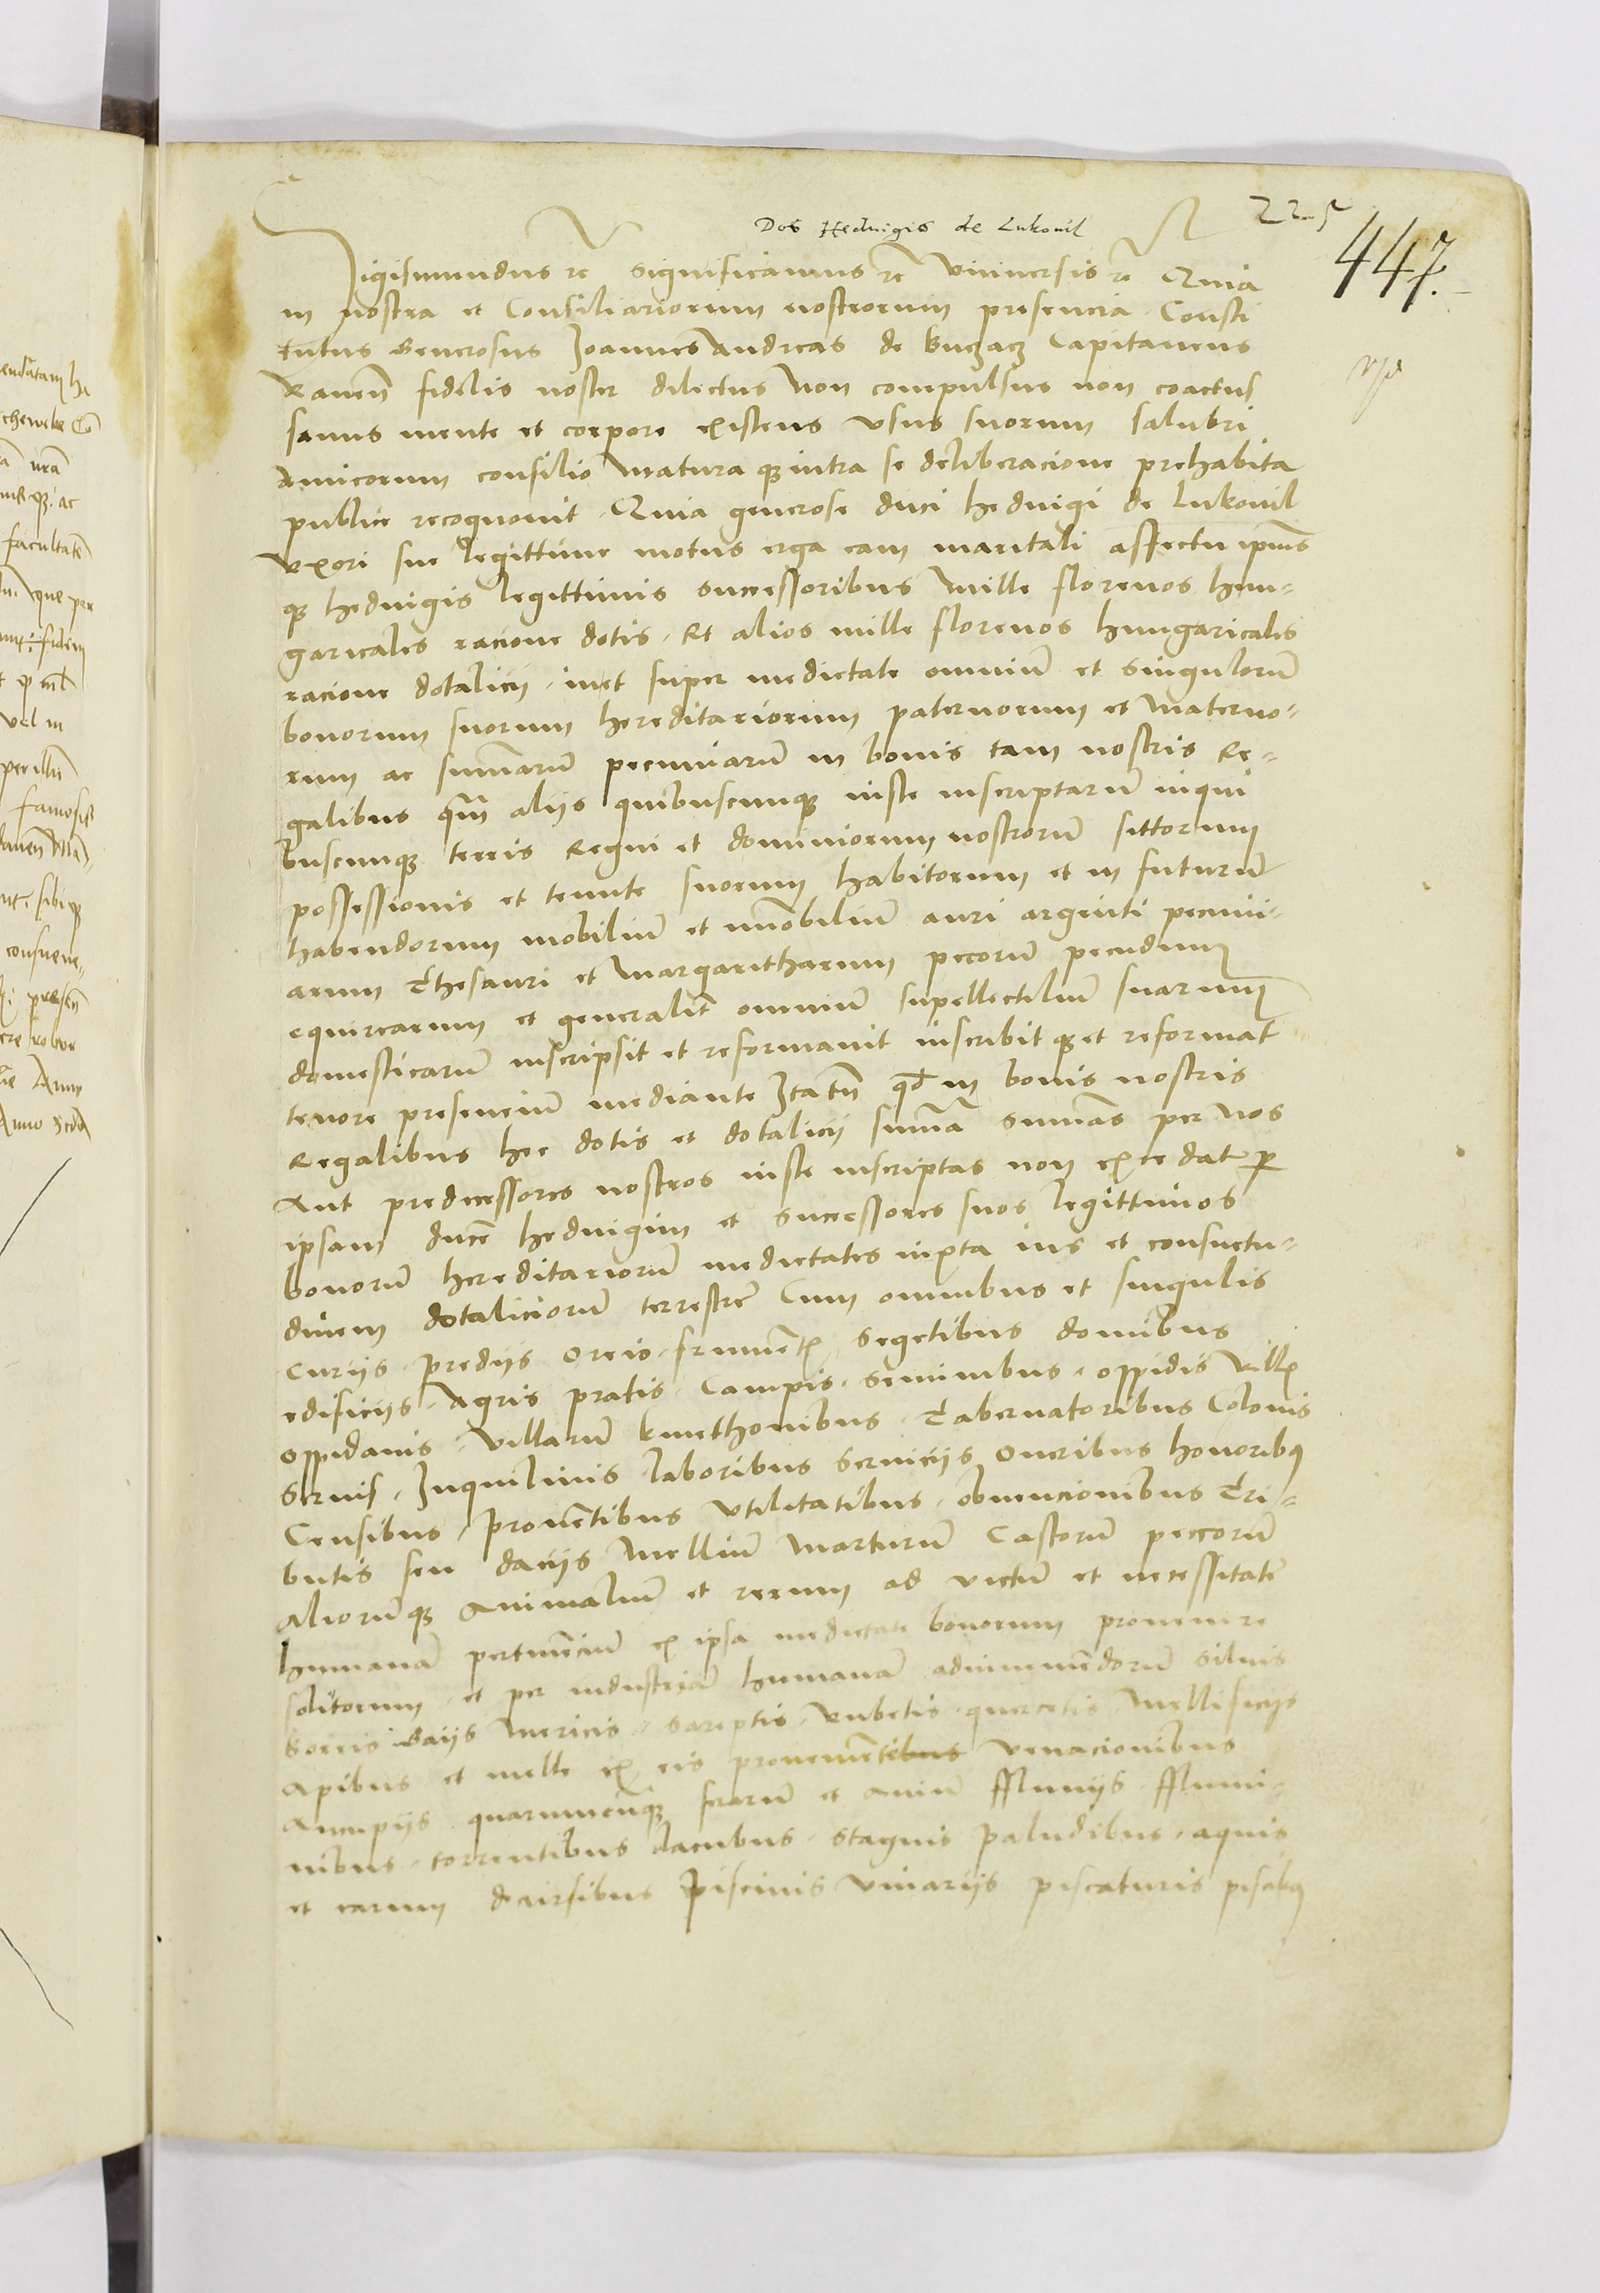 Dos Heduigis de Lukouil
225
447.
Sigismundus rc Significamus rc Vniuersis rc Quia
in nostra et Consiliariorum nostrorum presencia Consti
tutus Generosus Joannes Andreas de Buczacz Capitaneus
Rauen̄ fidelis noster dilectus Non compulsus non coactus
sanus mente et corpore existens vsus suorum salubri
amicorum consilio Matura q̢ intra se deliberacione prehabita
publice recognouit. Quia generose d̄nci heduigi de Lukouil
vxori sue legittime motus erga eam maritali affectu ipsius
q̢ heduigis legittimis successoribus Mille florenos hun-
garicales racione dotis. Et alios mille florenos hungaricales
racione dotalicij. in et super medietate omniū et Singulorū
bonorum suorum hereditariorum paternorum et Materno-
rum ac sum̄arū pecuniarū in bonis tam nostris Re-
galibus qm̄ alijs quibuscunq̢ iuste inscriptarū in qui
buscunq̢ terris Regni et dominiorum nostrorū sittorum
possessionis et tenute suorum habitorum et in futurū
habendorum mobiliū et im̄obiliū auri argenti pecuni-
arum Thesauri et Margaritharum pecorū pecudum
equirearum et generalit̄ omniū supellectiliū suarum
domesticarū inscripsit et reformauit inscribit q̢ et reformat
tenore presenciū mediante Itatn̄ qd̄ in bonis nostris
Regalibus hec dotis et dotalicij sum̄a Sum̄as per Nos
Aut predecessores nostros iuste inscriptas non excedat p̄
ipsam d̄nc̄ heduigim et Successores suos legittimos
bonorū hereditariorū medietates iuxta ius et consuetu-
dinem dotaliciorū terrestrē Cum omnibus et singulis
Curijs. predijs oreis. frument̄ Segetibus domibus
edificijs. Agris pratis. Campis. Seminibus. oppidis Vill̄
oppidanis. Villarū kmethonibus. Tabernatoribus Colonis
Seruis. Inquilinis laboribus Seruicijs oneribus honoribꝫ
Censibus. prouētibus Vtilitatibus. obuencionibus Tri-
butis seu dacijs Melliū Marturū Castorū peccorū
aliorū q̢ Animaliū et rerum ad victū et necessitatē
humanā pertinēciū ex ipsa medietate bonorum prouenire
solitorum. et per industriā humanā adinuniendorū Siluis
borris Gaijs Mericis. Sareptis. Rubetis. quercetis. Mellificijs
Apibus et melle ex eis proueniētibus venacionibus
Aucupijs quarumcunq̢ ferarū et auiū ffluuijs. fflumi-
nibus. torrentibus lacubus. Stagnis paludibus. aquis
et earum decursibus Piscinis Viuarijs piscaturis piscibꝫ